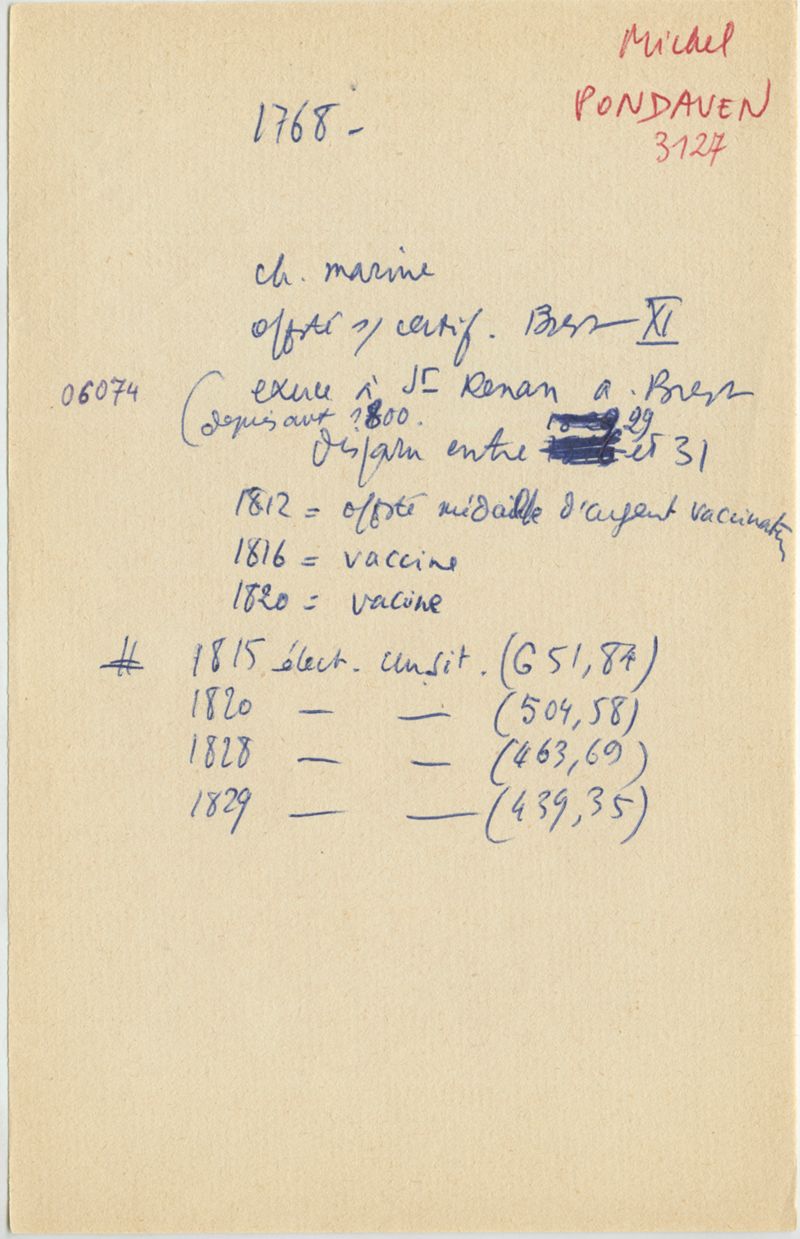 Michel
PONDAVEN
3127
1768 -
ch. marine
offté s/ certif. Brest XI
06074
exerce à St Renan a. Brest
(depuis avt 1800.
29
disparu entre et 31
1812 = offté médaille d'argent vaccinat
1816 = vaccine
1820 = vaccine
# 1815 élect. cursit. (651,84)
1820 — — (504,58)
1828 — — (463,69)
1829 — — (439,35)